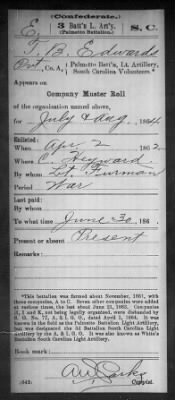 (Confederate.)
E 3 Batt'n L. Art'y. S. C.
(Palmetto Battalion.)
T. B. Edwards
Pvt, Co. A, Palmetto Batt'n, Lt. Artillery, South Carolina Volunteers.*
Appears on
Company Muster Roll
of the organization named above,
for July & Aug, 1864
Enlisted:
When Apr 2, 1862.
Where C. Heyward.
By whom Lt. Furman
Period War
Last paid:
By whom
To what time June 30, 186 .
Present or absent Present
Remarks:
*This battalion was formed about November, 1861, with three companies, A to C. Seven other companies were added at various times, the last about June 21, 1862. Companies
H, I and K, not being legally organized, were disbanded by S. O. No. 77, A. & I. G. O., dated April 1, 1864. It was known in the field as the Palmetto Battalion Light Artillery,
but was designated the 3d Battalion South Carolina Light Artillery by the A. & I. G. O. It was also known as White's Battalion South Carolina Light Artillery.
Book mark:
(642)
Copyist.